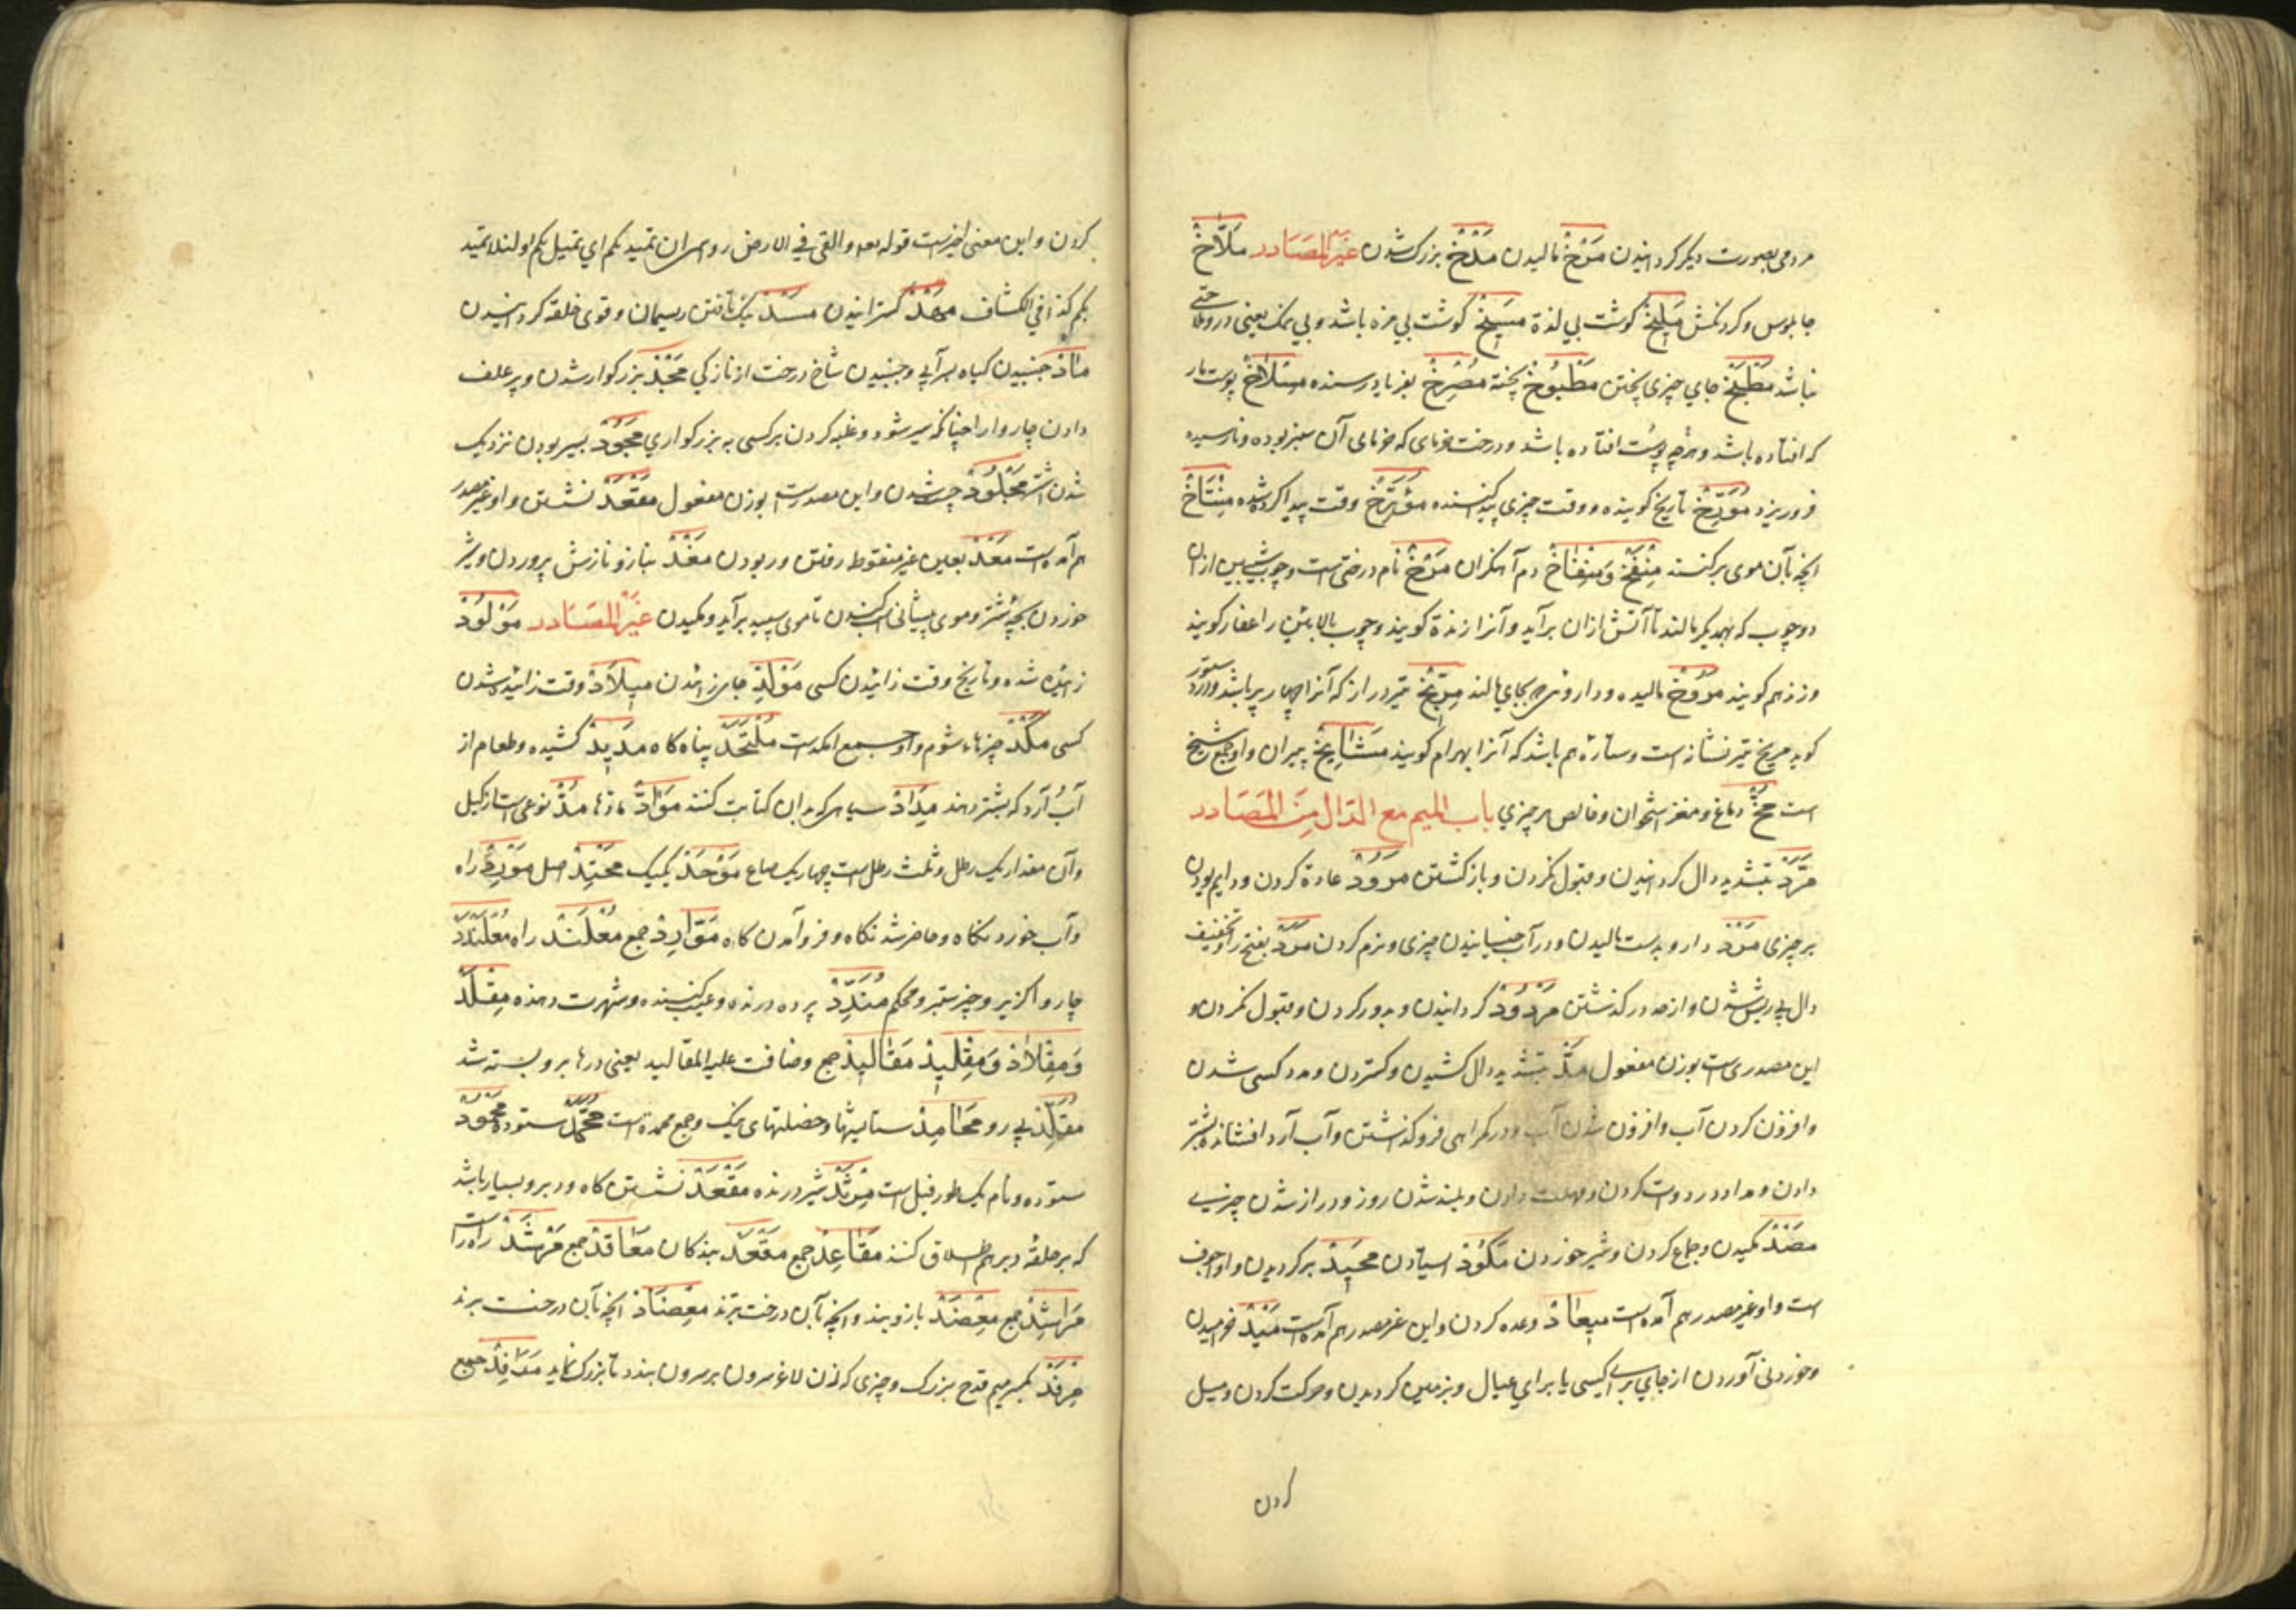 مردمی بصورت دیکر کردانیدن مَرْخْ مالیدن مَلْخْ بزرک شدن غَیْرُ المَصَادر مَلَّاخْ
جابلوس وکردنکش مَلِیخْ کوشت بی لذة مَسِیخْ کوشت بی مزه باشد وبی نمک یعنی دروهلا حتی
نباشد مَطْبَخْ جای چیزی پختن مَطْبُوخْ پخته مُصْرِخْ بفریاد رسنده مِسْلَاخْ پوست مار
که افتاده باشد وهرچه پوست افتاده باشد ودرخت خرمای که خرمای آن سبز بوده ونارسیده
فروریزد مُوَرِّخْ تاریخ کوینده ووقت چیزی پیدا کننده مُوَرَّخْ وقت پیدا کرده شده مِنْتَاخْ
انچه بآن موی برکنند مِنْفَخْ وَمِنْفَاخْ دم آهنکران مَرْخْ نام درختی است وچوب شیبین ازان
دوچوب که بهم دیکر مالند تا آتش ازان برآید وآنرا زندة کویند وچوب بالابین را عفار کویند
وزند هم کویند مَرُوخْ مالیده وداروئی که بجای مالند مِرِّیخْ تیر دراز که آنرا چهار پر باشد
کوید مریخ تیر نشانه است وستاره هم باشد که آنرا بهرام کویند مَشَایِخْ پیران واو جمع شیخ
است مُخّ دماغ ومغز استخوان وخالص هر چیزی باب المیم مع الدّال مِنَ المَصَادر
مَرَدّ بتشدید دال کردانیدن وقبول نکردن وبازکشتن مُرُودْ عادة کردن ودایم بودن
بر چیزی مَرْدْ دارو بدست مالیدن ودر آب جنبانیدن چیزی ونرم کردن مَرَدْ بفتح را وتخفیف
دال بی ریش شدن واز حد درکذشتن مَرْدُودْ کردانیدن وبدور کردن وقبول نکردن و
این مصدری است بوزن مفعول مَدّ بتشدید دال کشیدن وکستردن ومدد کسی شدن
وافزون کردن آب وافزون شدن آب ودر کمراهی فروکذاشتن وآب آرد افشانده بشتر
دادن ومداد در دوات کردن ومهلت دادن وبلند شدن روز ودراز شدن چیزی
مَصْدْ مکیدن وجماع کردن وشیر خوردن مُکُودْ ایستادن مَحِیدْ برکردیدن واو اجوف
است واو غیر مصدر هم آمده است مِیعَادْ وعده کردن واین غیر مصدر هم آمده است مَیْدْ خرامیدن
وخوردنی آوردن از جای برای کسی یا برای عیال وبزمین کردیدن وحرکت کردن ومیل
کردن
کردن واین معنی اخیر است قوله تعه والقی فی الارض رواسی ان تمید بکم ای تمیل بکم او لئلا تمید
بکم کذا فی الکشاف مَهْدْ کسترانیدن مَسْدْ نیک تافتن ریسمان وقوی خلقه کردانیدن
مَأْدْ جنبیدن کیاه سیرآبی وجنبیدن شاخ درخت از نازکی مَجْدْ بزرکوار شدن وپر علف
دادن چاروا را چنانکه سیر شود وغلبه کردن بر کسی به بزرکواری مُجُودْ بسیر بودن نزدیک
شدن اشتر مَجْلُودْ چست شدن واین مصدر است بوزن مفعول مَقْعَدْ نشستن واو غیر مصدر
هم آمده است مَعْدْ بعین غیر منقوط رفتن وربودن مَغْدْ بناز ونازش پروردن وشیر
خوردن بچه شتر وموی پیشانی اسب کندن تا موی سپید برآید ومکیدن غَیْرُ المَصَادر مَوْلُودْ
زائیده شده وتاریخ وقت زائیدن کسی مَوْلِدْ جای زائیدن مِیلَادْ وقت زائیده شدن
کسی مَکْدْ چیزهاء شوم واو جمع امکد است مُلْتَحَدْ پناه کاه مَدِیدْ کشیده وطعام از
آب آرد که بشتر دهند مِدَادْ سیاهی که بدان کتابت کنند مَوَادّ مادها مُدّ نوعی است از کیل
وآن مقدار یک رطل وثلث رطل است چهار یک صاع مَوْحَدْ یک یک مَحْتِدْ اصل مَوْرِدْ راه
وآب خورد نکاه وحاضر شد نکاه وفرو آمدن کاه مَوَارِدْ جمع مُعْلَنْدْ راه مُعْلَنْدَدْ
چاروا کزیر وچیز ستبر ومحکم مُنَدِّدْ پرده درنده وعیب کننده وشهرت دهنده مِقْلَدْ
وَمِقْلَادْ وَمِقْلِیدْ مَقَالِیدْ جمع وضاقت علیه المقالید یعنی درها برو بسته شد
مُقَلِّدْ پی رو مَحَامِدْ ستایشها وخصلتهای نیک وجمع محمدة است مُحَمَّدْ ستوده مَحْمُودْ
ستوده ونام یک طور فیل است شیر درنده مَقْعَدْ نشستن کاه ودبر وبسیار باشد
که بر حلقهٔ دبر هم اطلاق کنند مَقَاعِدْ جمع مَعْقَدْ بندکان مَعَاقِدْ جمع مَرْشَدْ راه راست
مَرَاشِدْ جمع مِعْضَدْ بازوبند وانچه بآن درخت برند مِعْضَادْ انچه بآن درخت برند
مِرْفَدْ بکسر میم قدح بزرک وچیزی که زن لاغر سرون بر سرون بندد تا بزرک نماید مَرَافِدْ جمع